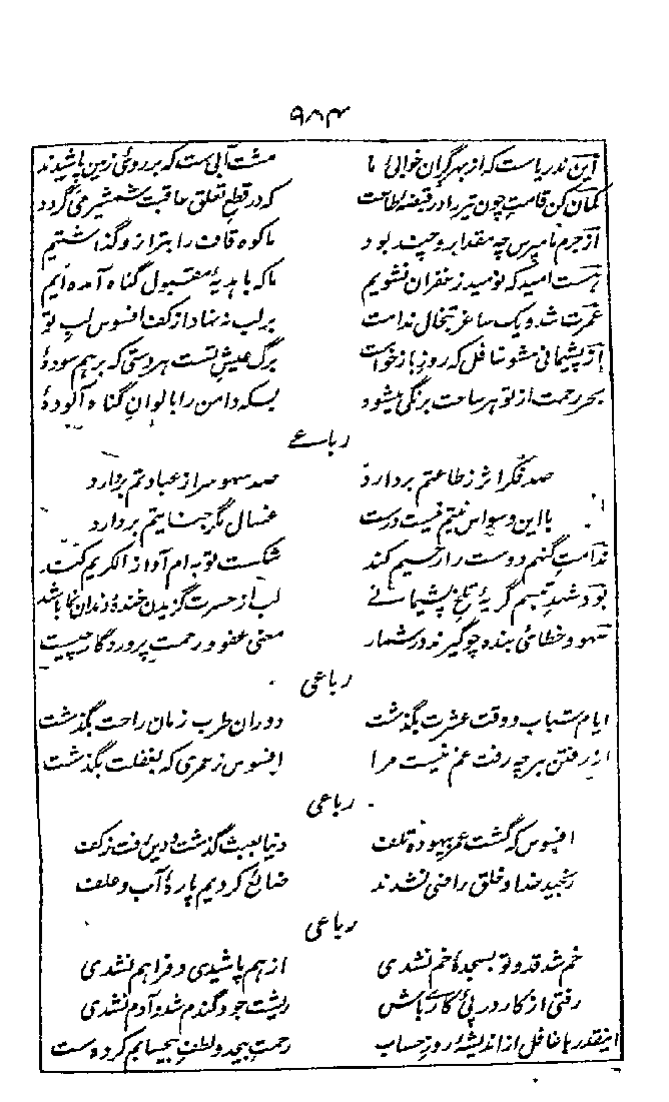 ۹۸۴
این ندریاست که از بهر گران خوابی ما مشت آبی ست که بر روی زمین پاشیدند
کمان کن قامت چون تیر را در قبضهٔ طاعت که در قطع تعلق عاقبت شمشیر می گردد
از جرم ما مپرس چه مقدار و چند بود ما کوه قاف را بترازو گذاشتیم
هست امید که نومید ز غفران نشویم ما که با هدیهٔ مقبول گناه آمده ایم
عمرت شد و یک ساغر تبخال ندامت بر لب ننهاد از کف افسوس لب تو
از پشیمانی مشو غافل که روز بازخواست برگ عیش تست هر دستی که بر هم سودهٔ
بحر رحمت از تو هر ساعت برنگی میشود بسکه دامن را بالوان گناه آلودهٔ
رباعی
صد فکر اثر ز طاعتم بردارد صد سهو سر از عبادتم بردارد
با این وسواس نیتم نیست درست غسال مگر جنابتم بردارد
ندامت گنهم دوست را رحیم کند شکست توبه ام آواز الکریم کند
بود شهد تبسم گریهٔ تلخ پشیمانی لب از حسرت گزیدن خندهٔ دندان نما باشد
سهو و خطای بنده چو گیرند در شمار معنی عفو و رحمت پروردگار چیست
رباعی
ایام شباب و وقت عشرت بگذشت دوران طرب زمان راحت بگذشت
از رفتن هر چه رفت غم نیست مرا افسوس ز عمری که بغفلت بگذشت
رباعی
افسوس که گشت عمر بیهوده تلف دنیا بعبث گذشت و دین رفت ز کف
رنجید خدا و خلق راضی نشدند ضائع کردیم پارهٔ آب و علف
رباعی
خم شد قد و تو بسجدهٔ خم نشدی از هم پاشیدی و فراهم نشدی
رفتی از کار در پی کارے باش ریشت جو و گندم شد و آدم نشدی
اینقدر با غافل از اندیشهٔ روز حساب رحمت بیحد و لطف بیحسابم کرده ست